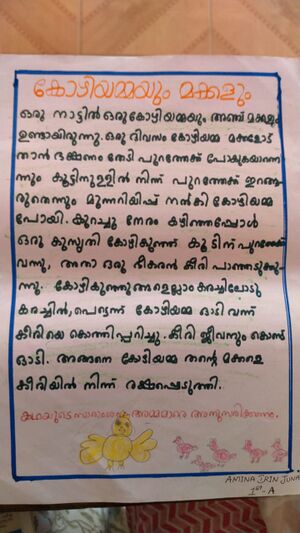 കോഴിയമ്മയും മക്കളും
ഒരു നാട്ടിൽ ഒരു കോഴിയമ്മയും അഞ്ച് മക്കളും
ഉണ്ടായിരുന്നു. ഒരു ദിവസം കോഴിയമ്മ മക്കളോട്
താൻ ഭക്ഷണം തേടി പുറത്തേക്ക് പോകുകയാണെ
ന്നും കൂട്ടിനുള്ളിൽ നിന്ന് പുറത്തേക്ക് ഇറങ്ങ
രുതെന്നും മുന്നറിയിപ്പ് നൽകി കോഴിയമ്മ
പോയി. കുറച്ചു നേരം കഴിഞ്ഞപ്പോൾ
ഒരു കുസൃതി കോഴികുഞ്ഞ് കൂടിന് പുറത്തേക്ക്
വന്നു, അതാ ഒരു ഭീകരൻ കീരി പാഞ്ഞടുക്കു
ന്നു. കോഴികുഞ്ഞുങ്ങളെല്ലാം കരച്ചിലോടു
കരച്ചിൽ, പെട്ടെന്ന് കോഴിയമ്മ ഓടി വന്ന്
കീരിയെ കൊത്തിപ്പറിച്ചു. കീരി ജീവനും കൊണ്ട്
ഓടി. അങ്ങനെ കോഴിയമ്മ തന്റെ മക്കളെ
കീരിയിൽ നിന്ന് രക്ഷപ്പെടുത്തി.
കഥയുടെ സാരാംശം അമ്മമാരെ അനുസരിക്കണം.
AMINA IRIN JUNA
1ST-A